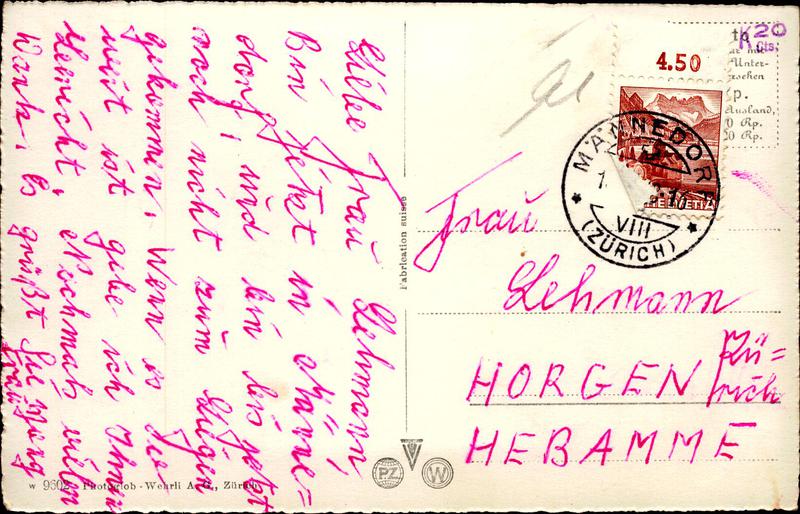 Liebe Frau Lehmann,
Bin jetzt in Männe=
dorf, und bin bis jetzt
noch nicht zum
gekommen. Wenn es so
weit ist gebe ich Ihnen
Bericht. Nochmals vielen
Dank. Es grüßt Sie
Fabrication suisse
4.50
K20
Cts.
Unter-
Ausland,
Rp.
20 Rp.
HELVETIA
MÄNNEDORF
VIII
(ZÜRICH)
Frau
Lehmann
HORGEN Zü=
rich
HEBAMME
PZ
W
W 9602 Photoglob-Wehrli A.G., Zürich